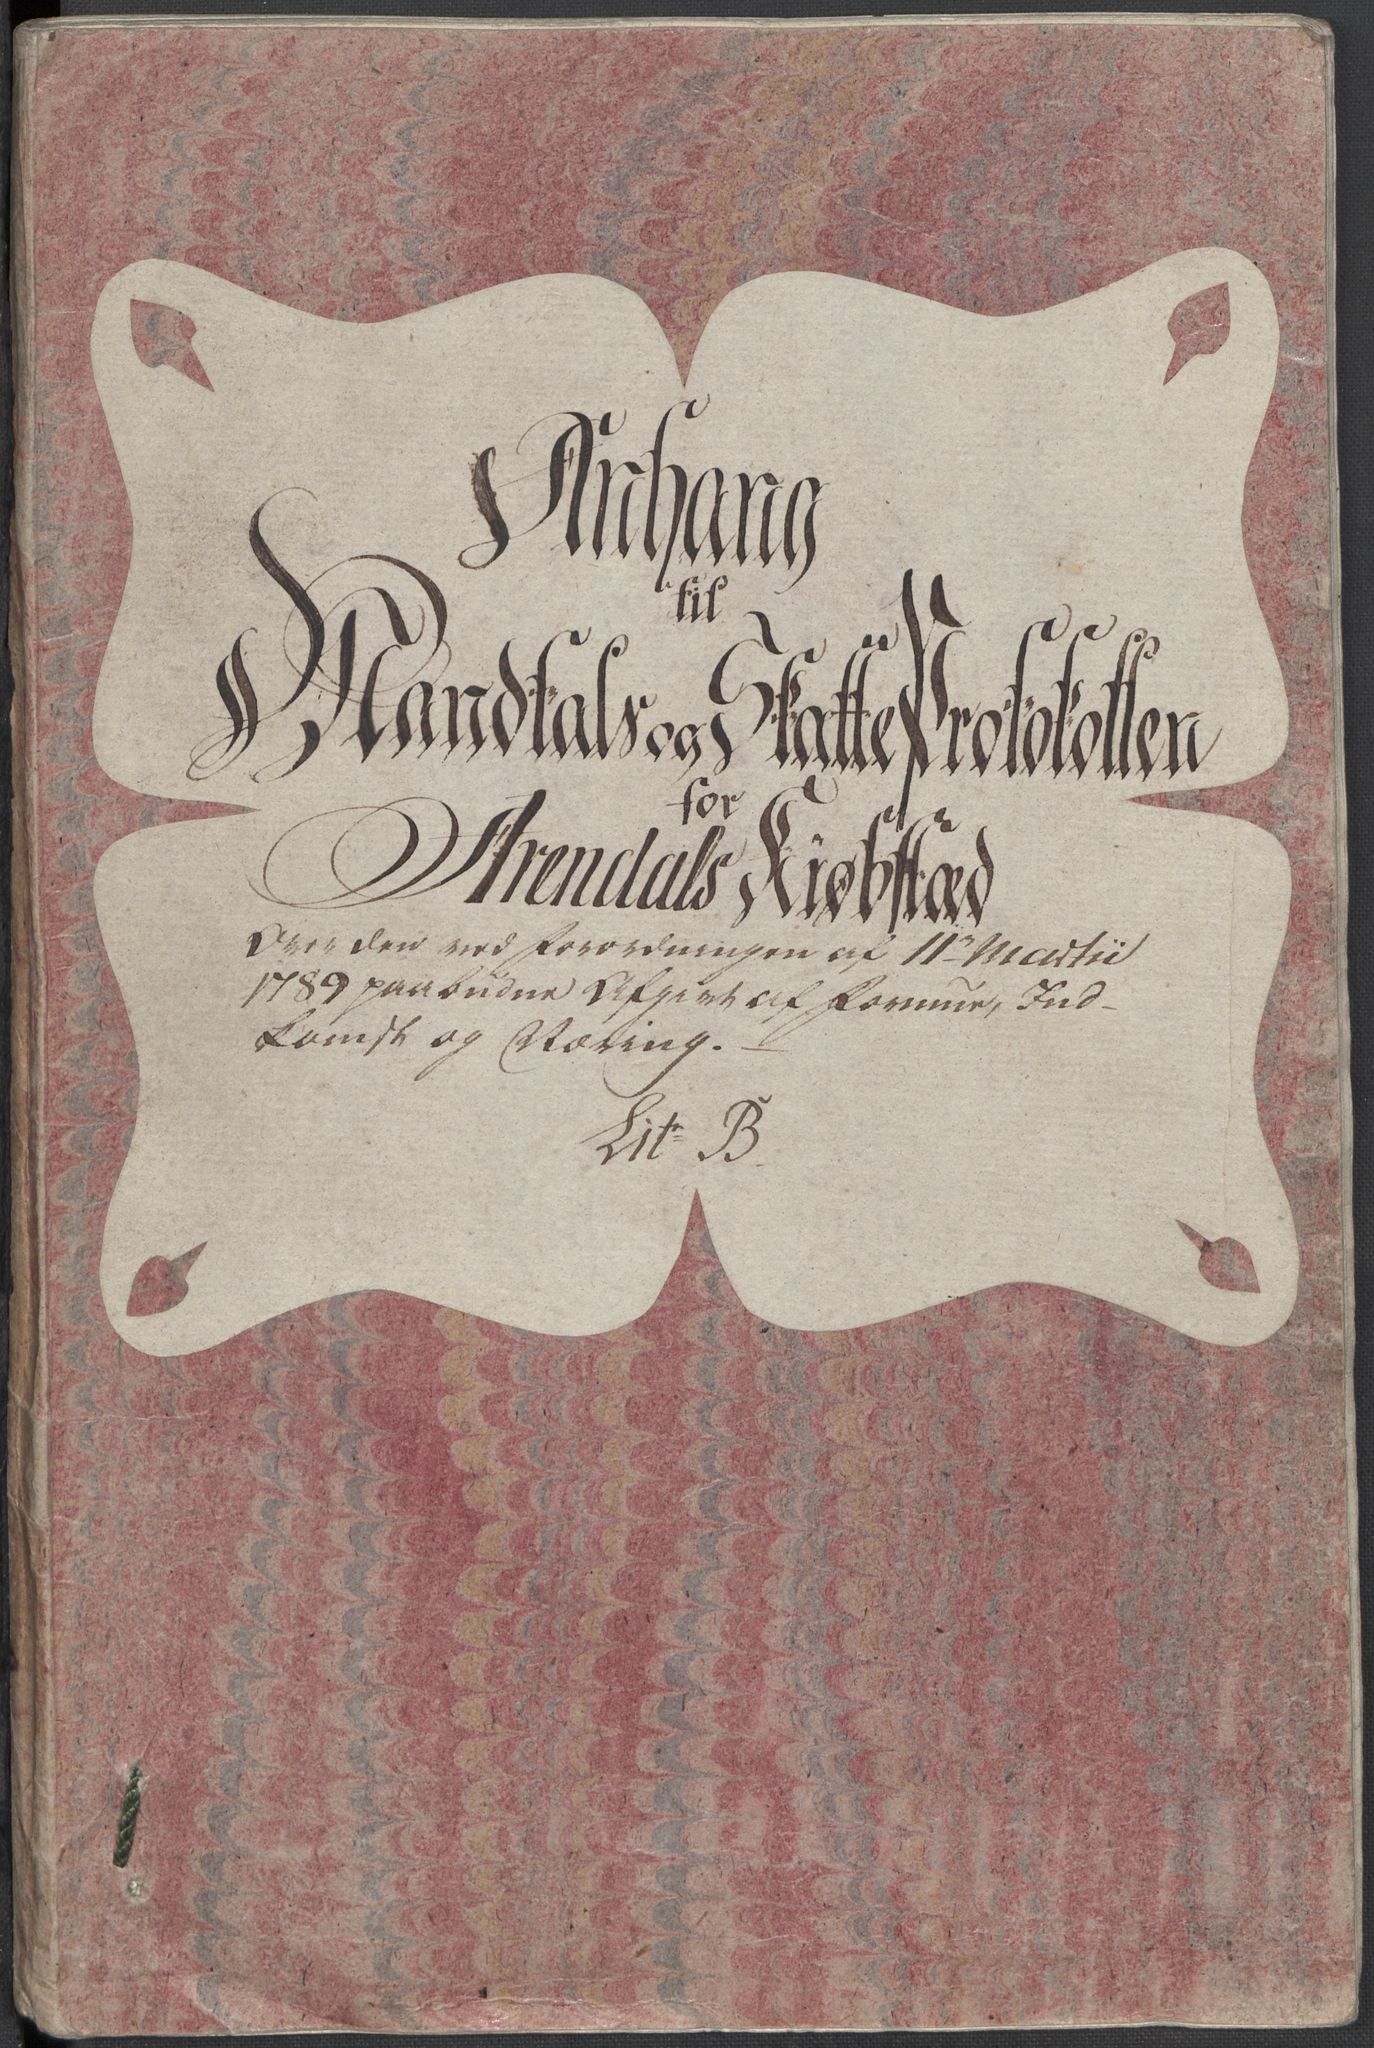 Anhang
til
Mandtals og Skatte Protokollen
for
Arendals Kiøbstæd
Over den ved Forordningen af 11te Martii
1789 paabudne Afgivt af Formue, Ind-
komst og Næring. —
Litr B